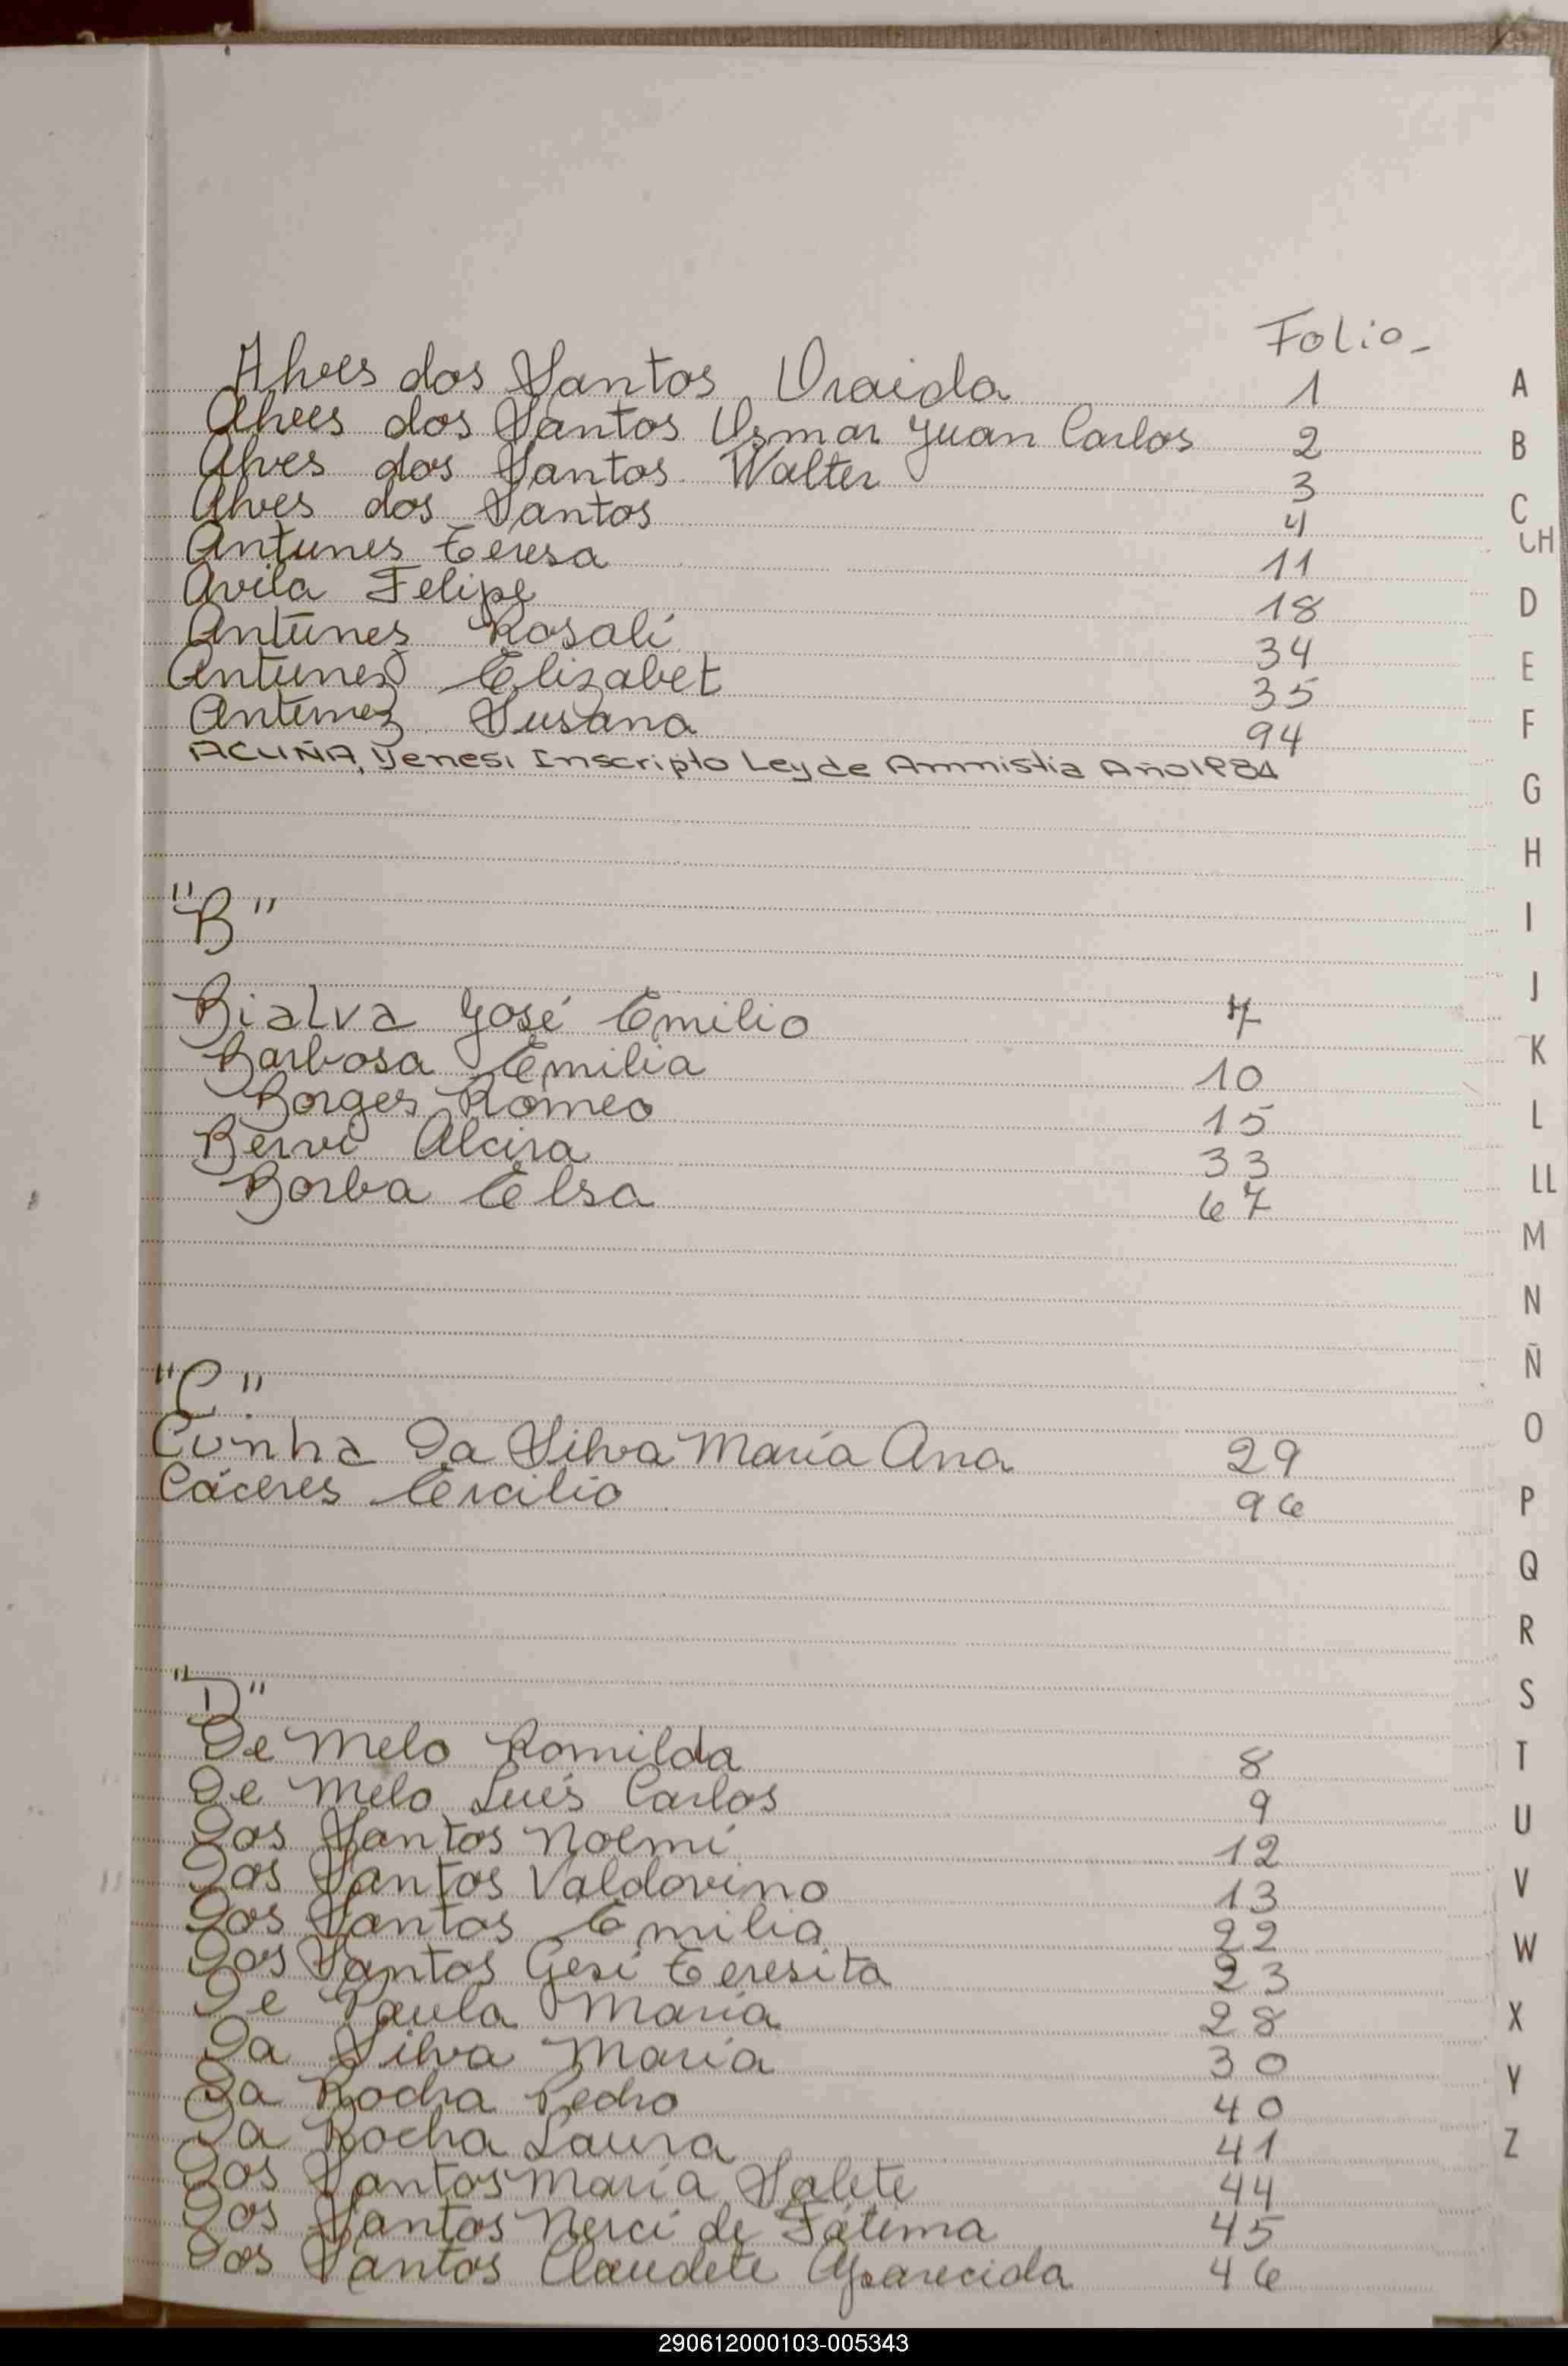 Folio -
Alves dos Santos Oraida 1
Alves dos Santos Osmar Juan Carlos 2
Alves dos Santos Walter 3
Alves dos Santos 4
Antunes Teresa 11
Avila Felipe 18
Antúnes Rosali 34
Antunes Elizabet 35
Antunez Susana 94
ACUÑA, Denesi Inscripto Ley de Amnistia Año 1984
"B"
Bialva José Emilio 7
Barbosa Emilia 10
Borges Romeo 15
Bervi Alcira 33
Borba Elsa 67
"C"
Cunha Da Silva María Ana 29
Cáceres Ercilio 96
"D"
De Melo Romilda 8
De Melo Luis Carlos 9
Dos Santos Noemí 12
Dos Santos Valdovino 13
Dos Santos Emilia 22
Dos Santos Gesi Teresita 23
De Paula María 28
Da Silva María 30
Da Rocha Pedro 40
Da Rocha Laura 41
Dos Santos María Salete 44
Dos Santos Nerci de Fátima 45
Dos Santos Claudete Aparecida 46
A
B
C
CH
D
E
F
G
H
I
J
K
L
LL
M
N
Ñ
O
P
Q
R
S
T
U
V
W
X
Y
Z
290612000103-005343